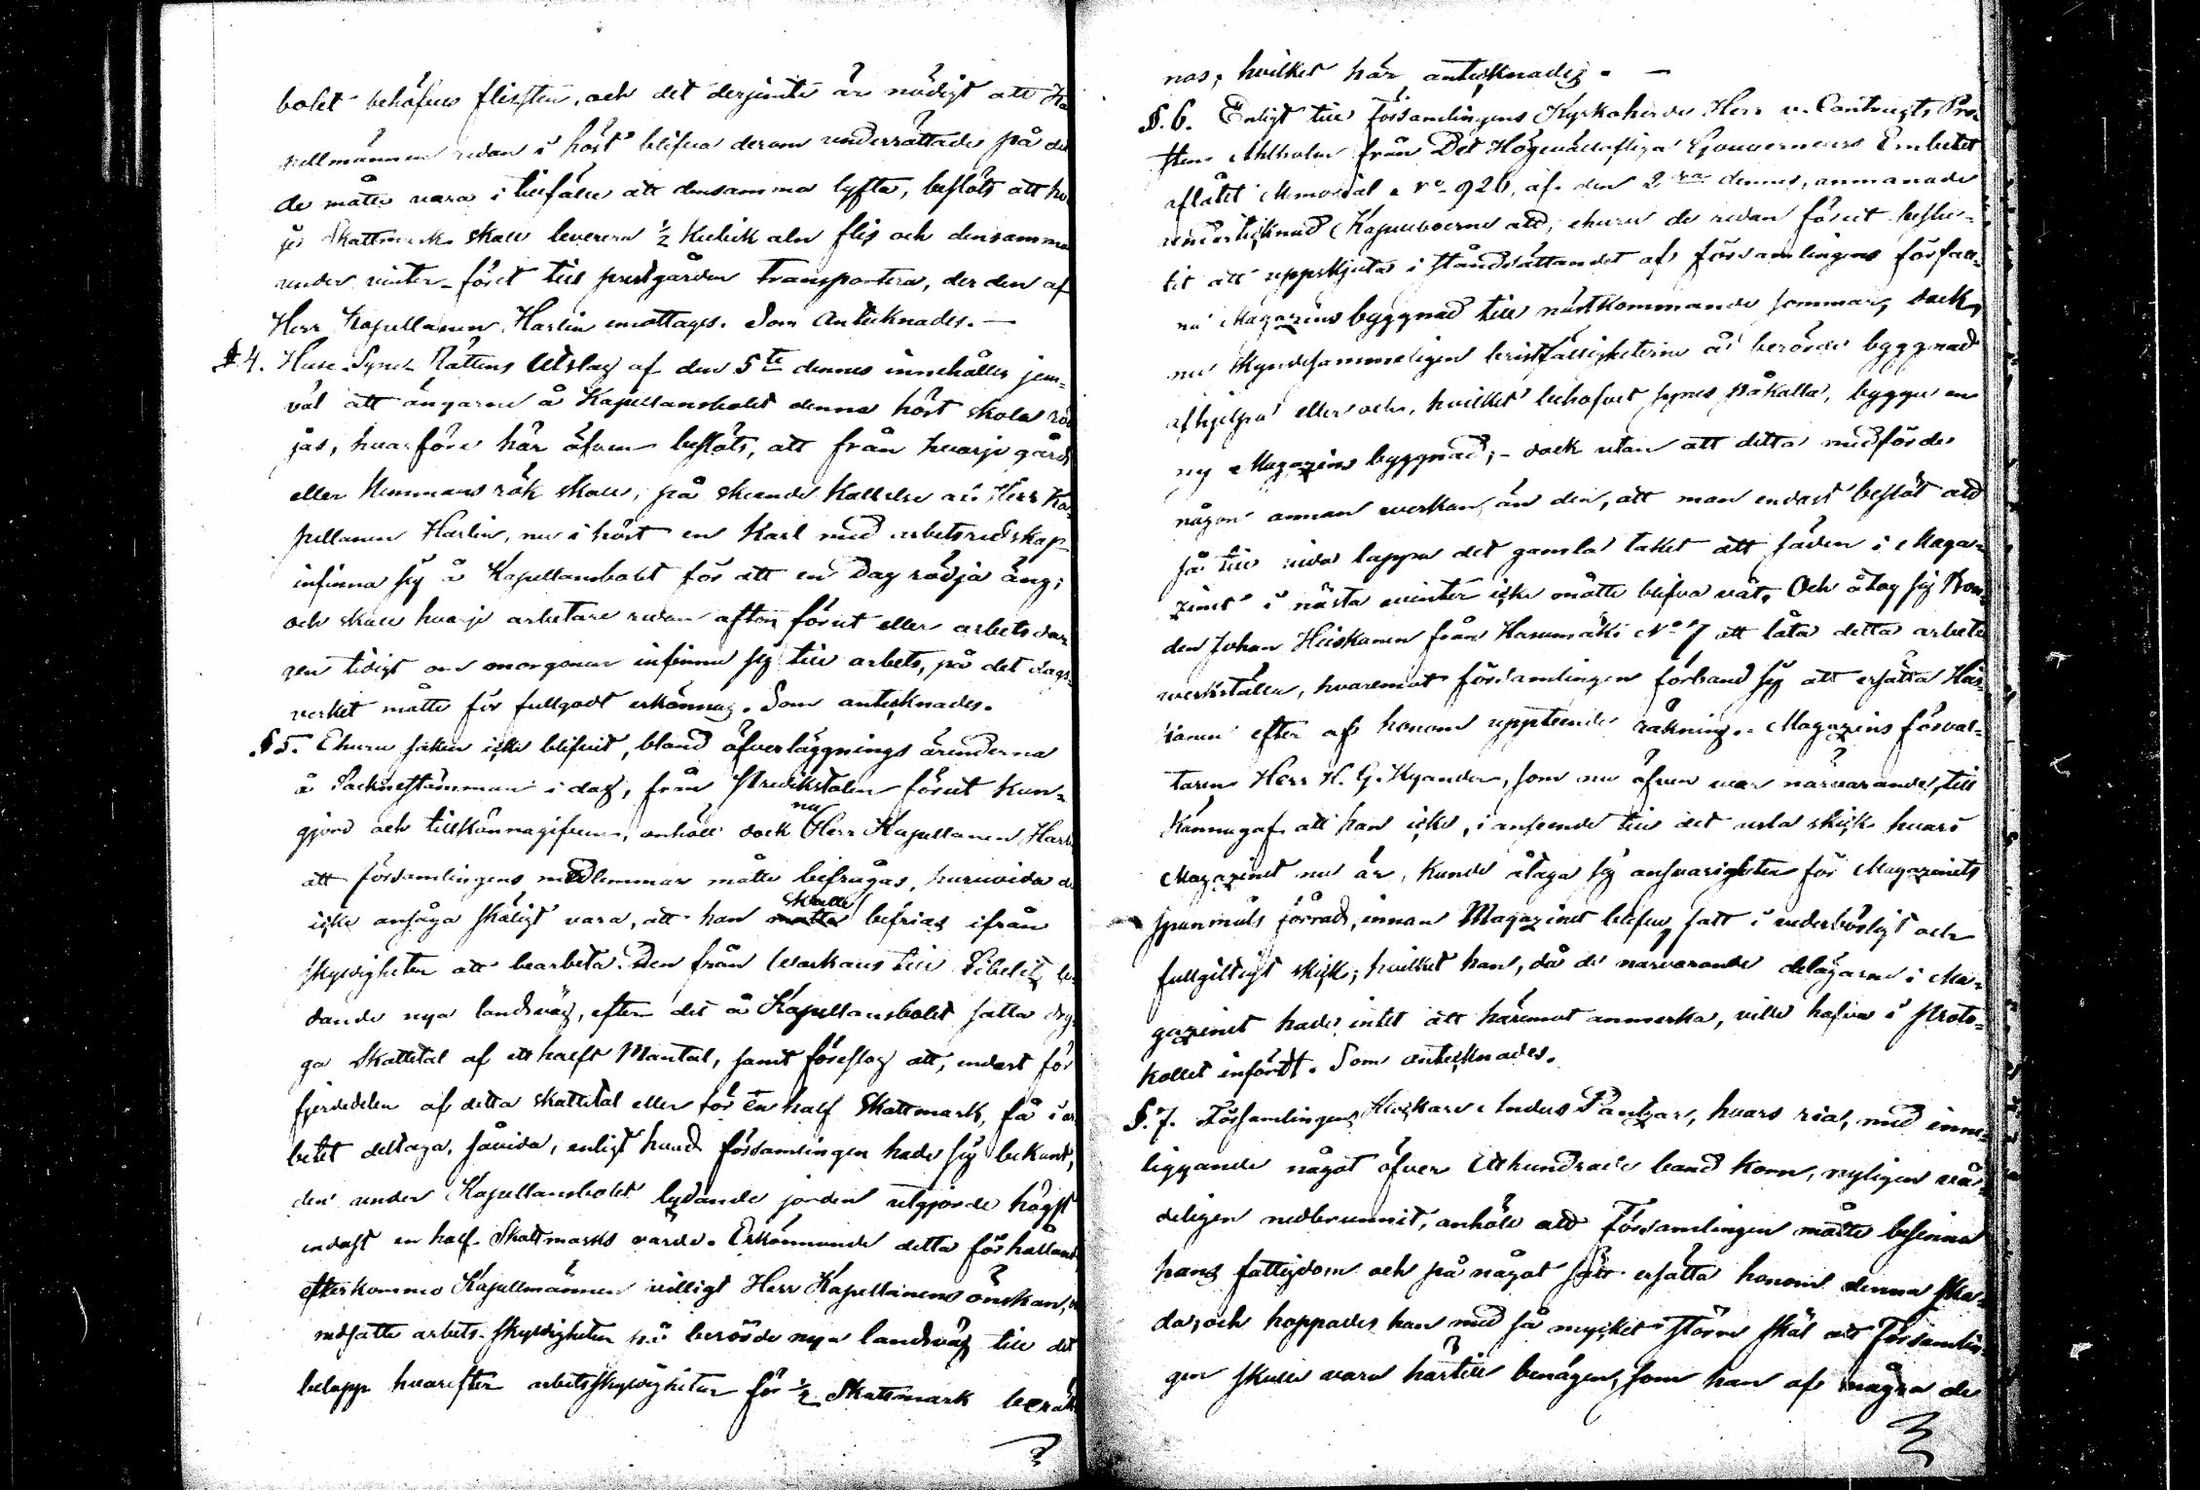 bolet behöfves flisster, och det derjemte är nödigt att Ka
pellmännen redan i höst blifva derom underrättade på det
de måtte vara i tillfälle att densamma lyfta, beslöts att hvar
je Skattmark skall leverera ½ Kubik aln flis och densamma
under vinter-föret till prestgården transportera, der den af
Herr Kapellanen Harlin emottages. Som Antecknades. —
§ 4. Huse-Syns Rättens Utslag af den 5te dennes innehåller jem-
väl att ängarne å Kapellansbolet denna höst skola röd
jas, hvarföre här äfven beslöts, att från hvarje gård
eller Hemmans rök skall, på skeende Kallelse af Herr Ka-
pellanen Harlin, nu i höst en Karl med arbetsredskap
infinna sig å Kapellansbolet för att en Dag rödja äng;
och skall hvarje arbetare redan afton förut eller arbetsda-
gen tidigt om morgonen infinna sig till arbets, på det dags-
verket måtte för fullgodt erkännas. Som antecknades.
§ 5. Ehuru saken icke blifvit, bland öfverläggnings ärenderna
å Socknestämman i dag, från Predikstolen förut kun-
gjord och tillkännagifven, anhöll dock nu Herr Kapellanen Harl
att församlingens medlemmar måtte befrågas, huruvida de
icke anse skäligt vara, att han skulle befrias ifrån
skyldigheten att bearbeta Den från Warkaus till Libelitz le-
dande nya landsväg, efter det å Kapellansbolet satta dry-
ga Skattetal af ett halft Mantal, samt föreslog att, endast för
fjerdedelen af detta skattetal eller för en half Skattmark, få i ar
betet deltaga, såvida, enligt hvad församlingen hade sig bekant,
den under Kapellansbolet lydande jorden utgjorde högst
endast en half Skattmarks värde. Erkännande detta förhålland
efterkommo Kapellmännen villigt Herr Kapellanens önskan,
nedsatte arbets-skyldigheten på berörde nya landsväg till det
belopp hvarefter arbetsskyldigheten för ½ Skattmark beräk
nas; hvilket här antecknades. —
§. 6. Enligt till Församlingens Kyrkoherde Herr v. Contracts Pro-
sten Ahlholm från Det Högvällofliga Gouverneurs Embetet
aflåtet Memorial No 926, af den 2dra dennes, anmanade
undertecknad Kapellboerne att, ehuru de redan förut beslu-
tit att uppskjuta i ståndsättandet af församlingens förfall-
na Magazins byggnad till nästkommande sommar, dock
nu skyndesammeligen bristfälligheterne å berörde byggnad
afhjelpa eller och, hvilket behofvet synes påkalla, bygga en
ny Magazins byggnad; - dock utan att detta medförde
någon annan verkan, än den, att man endast beslöt att
så till vida lappa det gamla taket att säden i Maga-
zinet i nästa vinter icke måtte blifva våt. Och åtog sig Bon-
den Johan Heiskanen från Harumäki No 7 att låta detta arbete
verkställa, hvaremot församlingen förband sig att ersätta Heis-
kanen efter af honom uppteende räkning. Magazins förval-
taren Herr H. G. Kyander, som nu äfven var närvarande, till
kännagaf att han icke, i anseende till det usla skick hvari
Magazinet nu är, kunde åtaga sig ansvarigheten för Magazinets
spanmåls förråd, innan Magazinet blifver satt i vederbörligt och
fullgiltigt skick; hvilket han, då de närvarande delägarne i Ma-
gazinet hade intet att häremot anmerka, ville hafva i Proto-
kollet infördt. Som antecknades.
§. 7. Församlingens Klockare Anders Pantzar, hvars ria, med inne-
liggande något öfver Etthundrade band korn, nyligen vå-
deligen nedbrunnit, anhöll att Församlingen måtte besinna
hans fattigdom och på något sätt ersätta honom denna ska-
da, och hoppades han med så mycket större skäl att Församlin-
gen skulle vara härtill benägen, som han af några de